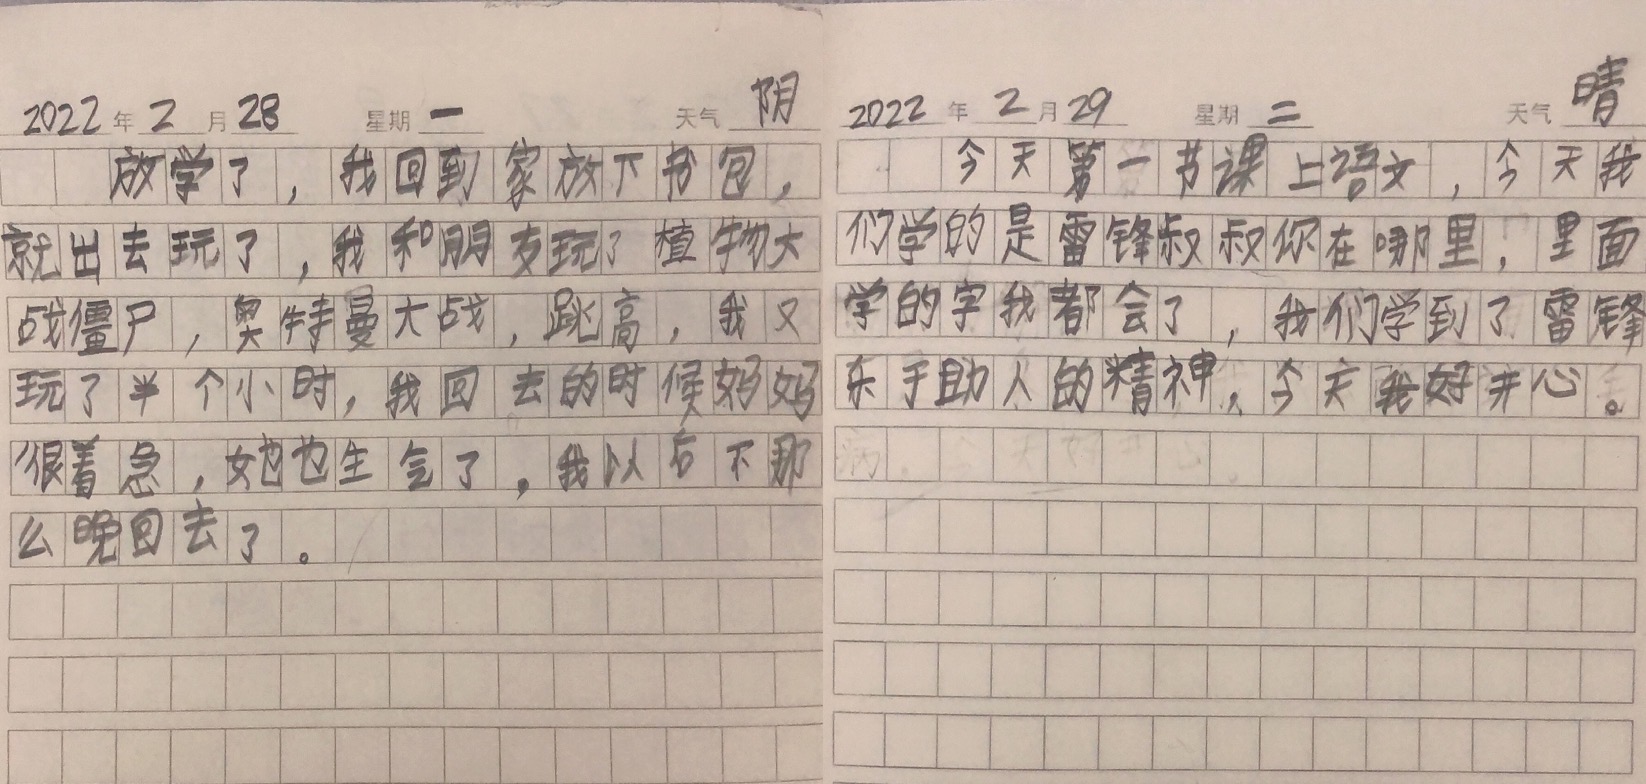 2022年2月28 星期一 天气阴
放学了，我回到家放下书包，
就出去玩了，我和朋友玩了植物大
战僵尸，奥特曼大战，跳高，我又
玩了半个小时，我回去的时候妈妈
很着急，她也生气了，我以后不那
么晚回去了。
2022年2月29 星期二 天气晴
今天第一节课上语文，今天我
们学的是雷锋叔叔你在哪里，里面
学的字我都会了，我们学到了雷锋
乐于助人的精神，今天我好开心。